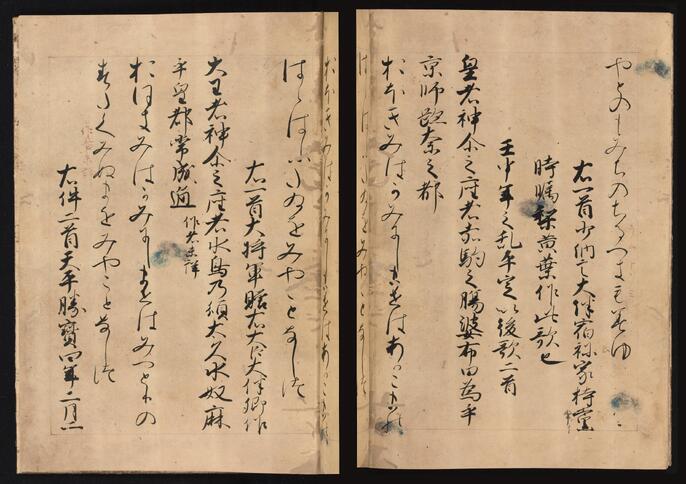 やとのもみちの
右一首少納言大伴宿祢家持當
時矚梨黄葉作此歌也
壬申年之乱平定以後歌二首
皇者神尓之座者赤駒之腹婆布田為乎
京師跡奈之都
おほきみはかみにしませはあかこまの
はらはふたゐをみやことなしつ
おほきみはかみにしませはあかこまの
はらはふたゐをみやことなしつ
右一首大将軍贈右大臣大伴卿作
大王者神尓之座者水鳥乃須太久水奴麻
乎皇都常成通 作者未詳
おほきみはかみにしませはみつとりの
すたくみぬまをみやことなしつ
右件二首天平勝寶四年二月二